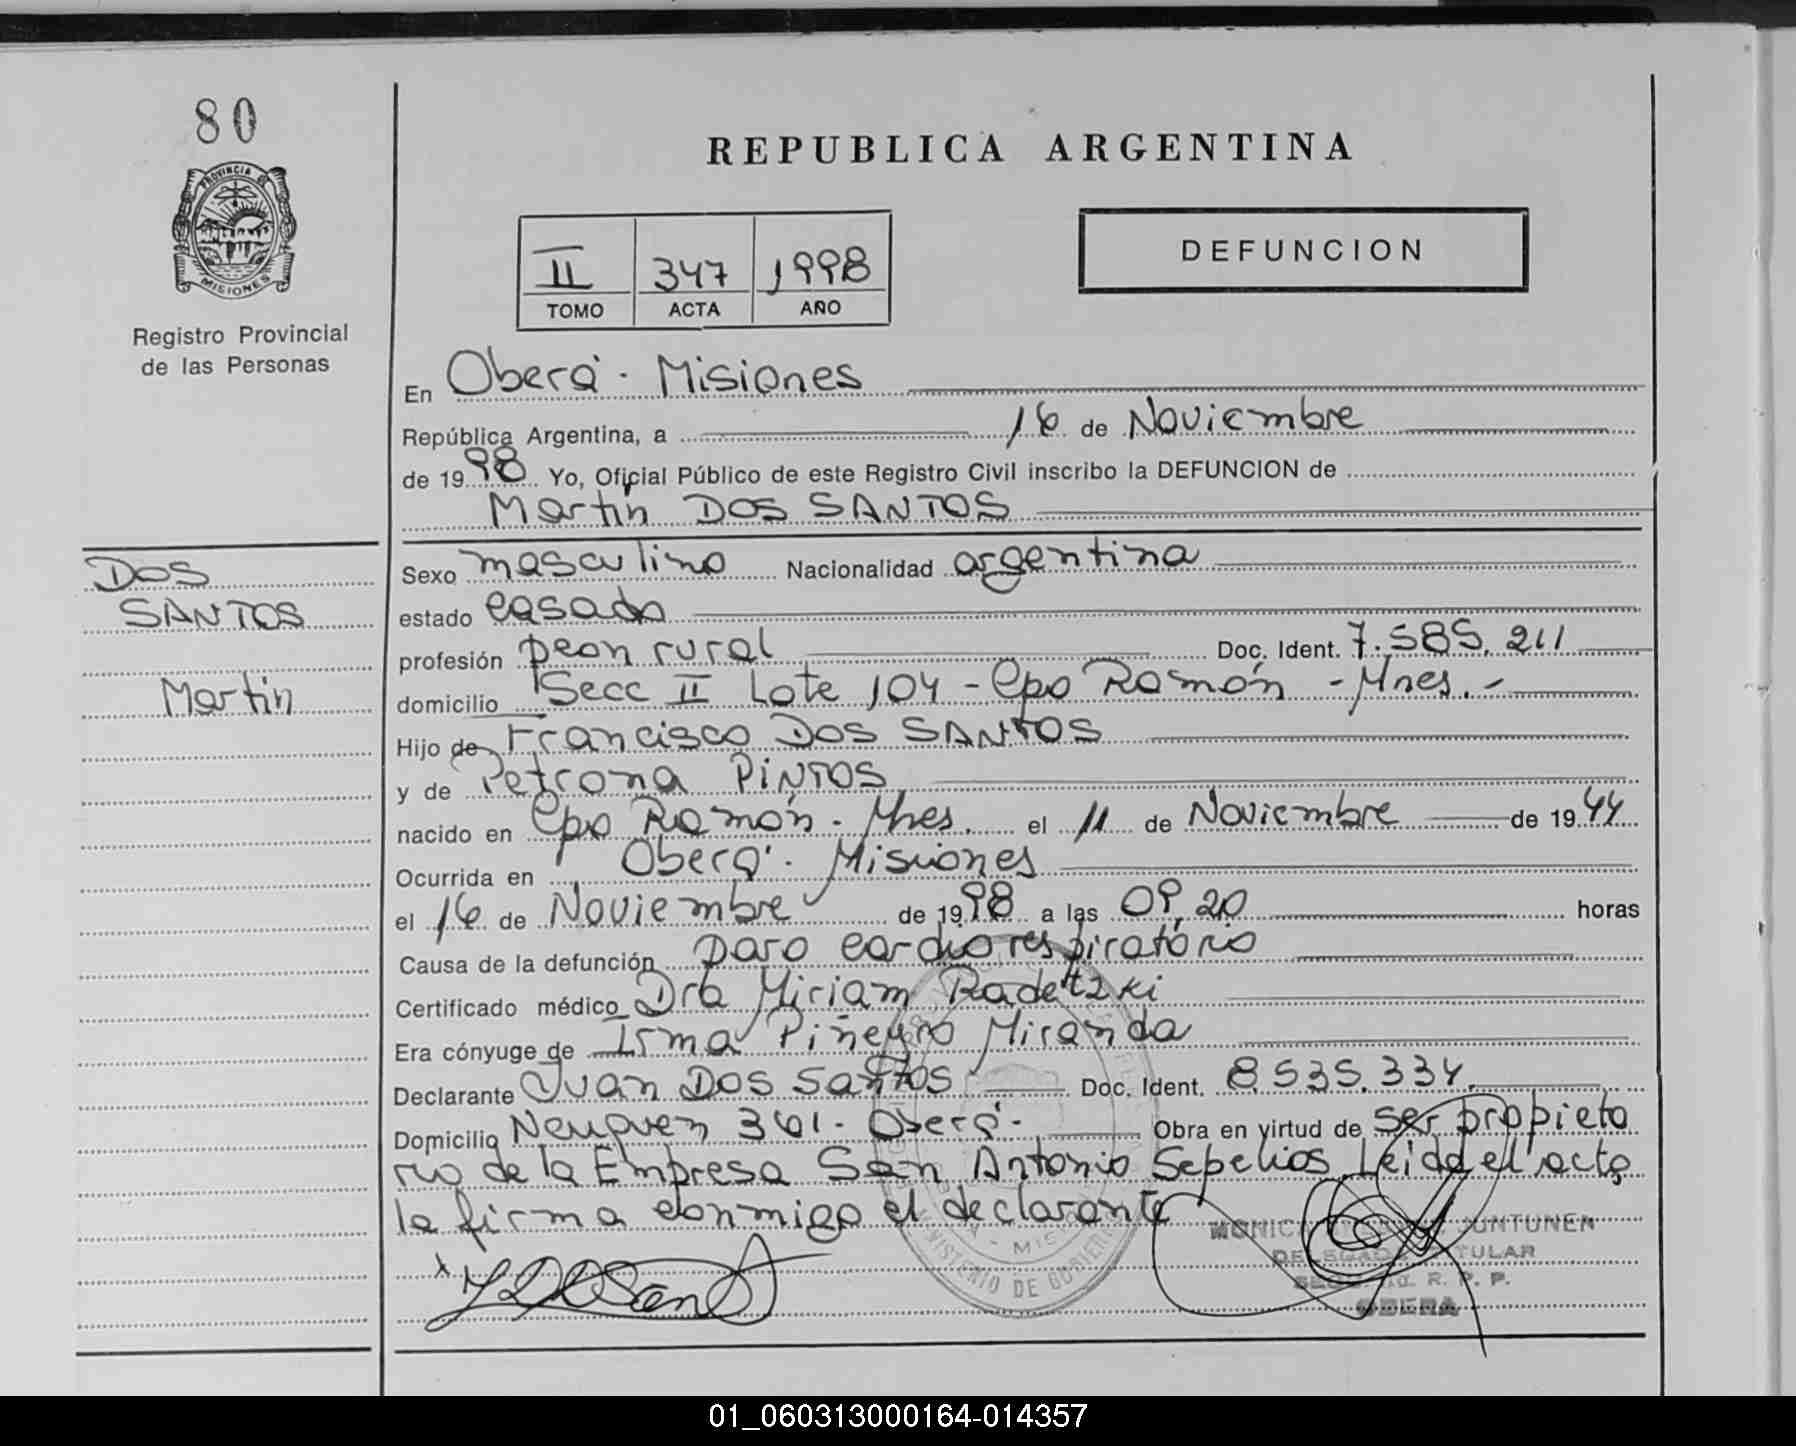 80
PROVINCIA DE
MISIONES
Registro Provincial
de las Personas
REPUBLICA ARGENTINA
II 347 1998
TOMO ACTA AÑO
DEFUNCION
En Oberá. Misiones
República Argentina, a 16 de Noviembre
de 1998 Yo, Oficial Público de este Registro Civil inscribo la DEFUNCION de
Martín DOS SANTOS
DOS
SANTOS
Martín
Sexo masculino Nacionalidad argentina
estado casado
profesión peon rural Doc. Ident. 7.585.211
domicilio Secc II Lote 104 - Cpo Ramón - Mnes.-
Hijo de Francisco DOS SANTOS
y de Petrona PINTOS
nacido en Cpo Ramón. Mnes. el 11 de Noviembre de 1944
Ocurrida en Oberá. Misiones
el 16 de Noviembre de 1998 a las 09,20 horas
Causa de la defunción paro cardiorespiratório
Certificado médico Dra Miriam Radetzki
Era cónyuge de Irma Piñeyro Miranda
Declarante Juan Dos Santos Doc. Ident. 8.535.334.
Domicilio Neuquen 361. Oberá. Obra en virtud de ser propieta
rio de la Empresa San Antonio Sepelios Leida el acta
la firma conmigo el declarante
MONICA JUNTUNEN
DELEGADA TITULAR
R. P. P.
OBERA
MINISTERIO DE GOBIERNO
01_060313000164-014357